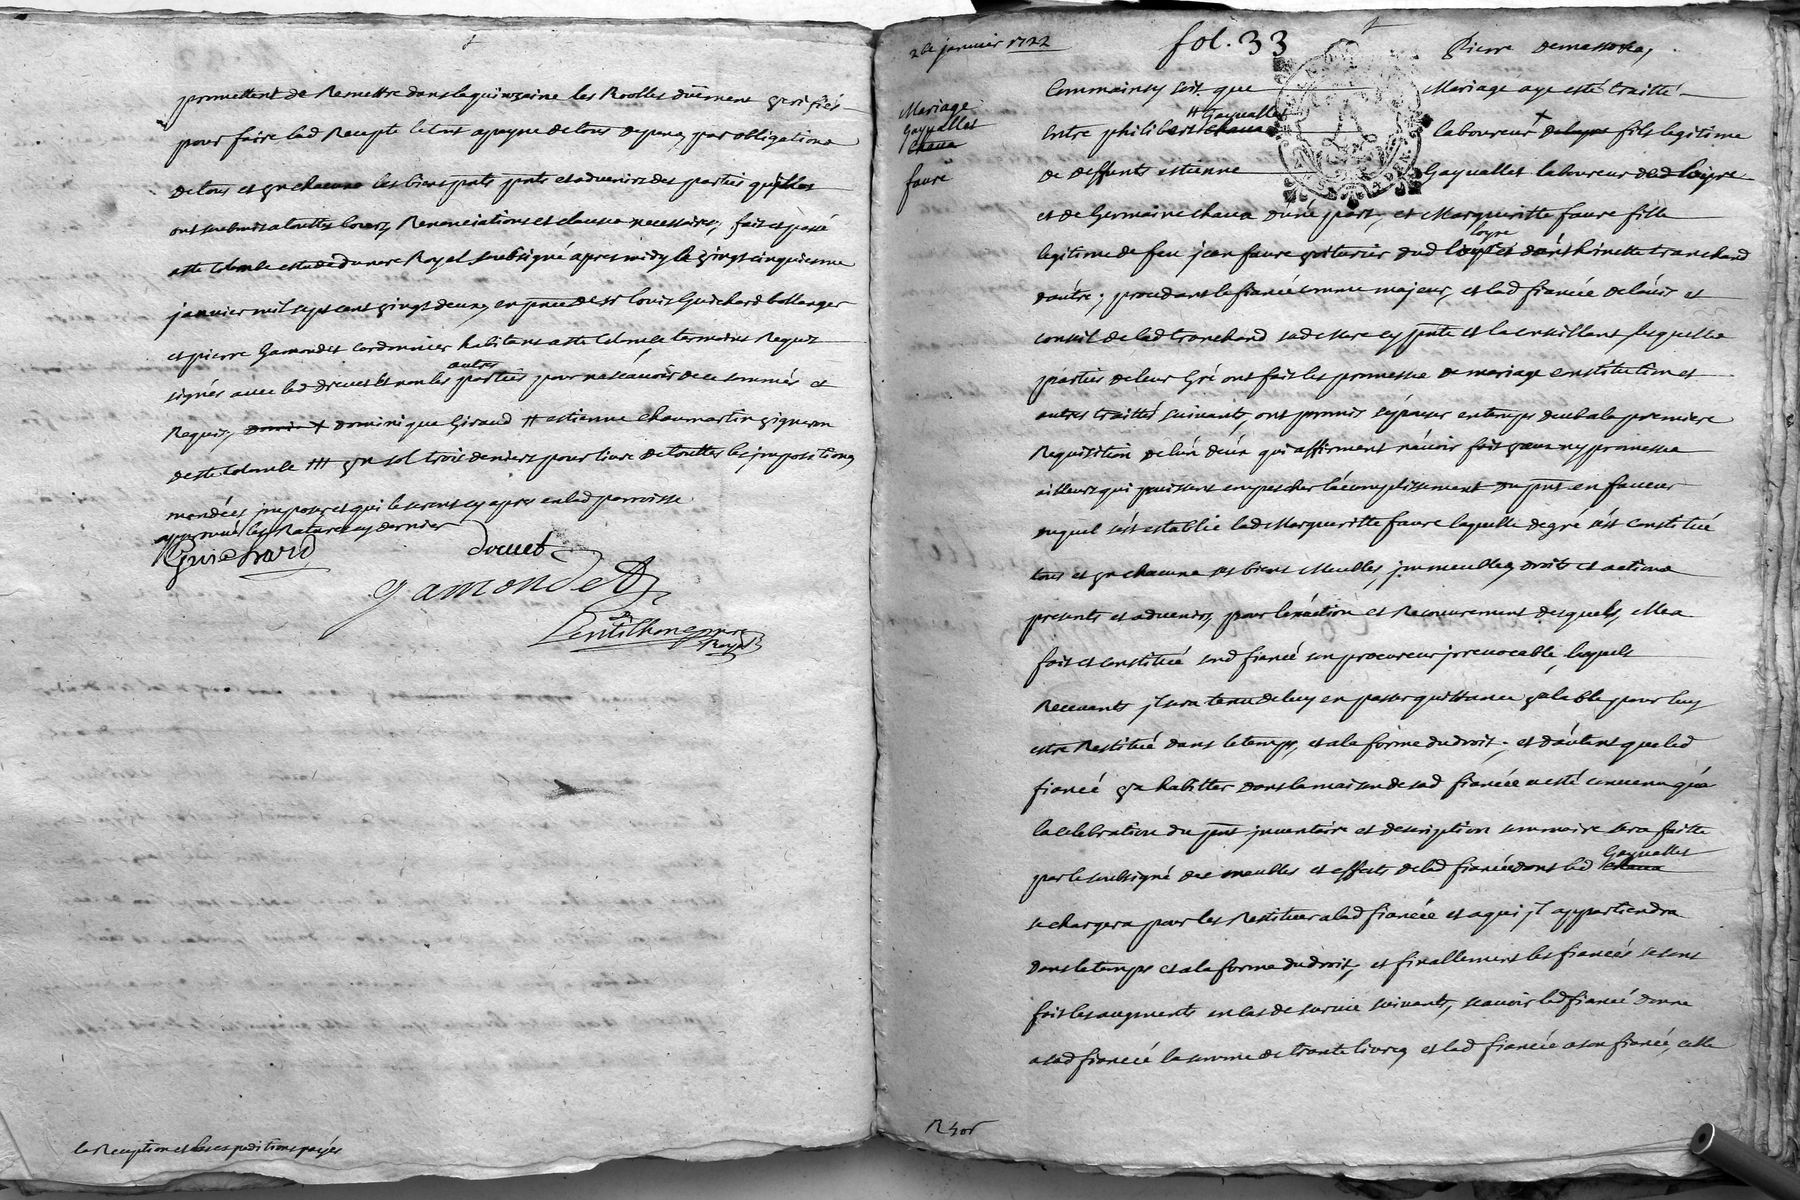 promettent de Remettre dans la quinzaine les Roolles düement veriffiés
pour faire lad Recepte le tout a payne de tous depens, par obligations
de tous et un chacuns les biens pnts et advenirs des parties qu'elles
ont submis a touttes cours, Renonciations et clauses necessaires, fait et passé
a ste Colombe estude du nore Royal soubsigné apres midy le vingt cinquiesme
janvier mil sept cent vingt deux, en pnce de sr Louis Guichard bollanger
et pierre Gamondet cordonnier habitans a ste Colombe tesmoins Requis
signés avec led drevet et non les autres parties pour ne sçavoir de ce sommés et
Requis, dominique Giraud # estienne chaumartin vigneron
de ste Colombe ## un sol trois deniers pour livre de touttes les impositions
mandées imposées et qui le seront cy apres en lad parroisse
approuvé les Ratures cy dernier
Guichard drevet
gamondet
Lentilhon nore
Royal
la Reception et les expeditions payés
fol. 33
Mariage
Gayvallet
chava
faure
Comme ainsy soit que Mariage aye esté traitté
Entre philibert chava # Gayvallet laboureur fils legitime
de deffunts estienne Gayvallet laboureur
et de Germaine chava d'une part, et Margueritte faure fille
legitime de feu jean faure voiturier dud loyre et d'anthoinette tranchand
d'autre, procedant le fiancé comme majeur, et lad fiancée de l'avis et
conseil de lad tranchand sad mere cy pnte et la conseillant, lesquelles
parties de leur gré ont fait les promesses de mariage constitution et
autres traittés suivants, ont promis s'épouser en temps deub a la premiere
Requisition de l'un d'eux qui affirment n'avoir fait vœux ny promesses
ailleurs qui puissent empescher l'acomplissement du pnt en faveur
duquel s'est establie lad Margueritte faure laquelle de gré s'est constitué
tous et un chacuns ses biens Meubles, immeubles, droits et actions
presents et advenirs, pour l'exaction et Recouvrement desquels, elle a
fait et constitué sond fiancé son procureur irrevocable, lesquels
Recevants il sera tenu de luy en passer quittance valable pour luy
estre Restitué dans le temps, et a la forme du droit; et d'autant que led
fiancé va habitter dans la maison de sad fiancée a esté convenu qu'a
la celebration du pnt inventaire et description sommaire sera faitte
par le soubsigné des meubles et effects de lad fiancée dont led chava Gayvallet
se chargera pour les Restituer a lad fiancée et a qui il appartiendra
dans le temps et a la forme du droit, et finallement les fiancés se sont
fait les augments en cas de survie suivants, sçavoir led fiancé donne
a sad fiancée la somme de trante livres, et lad fiancée a son fiancé, celle